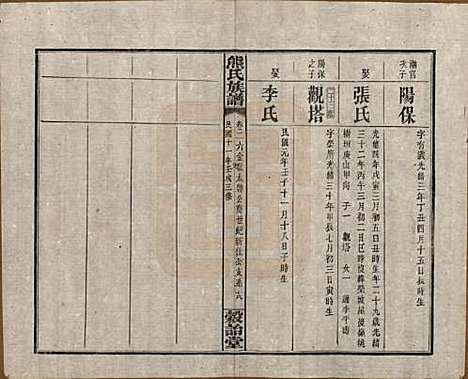 瀚官次子
陽保
字有歲光緒三年丁丑四月十五日辰時生
娶
張氏
光緒四年戊寅三月初五日丑時生年二十九歲光緒
三十二年丙午三月初二日巳時歿葬城屋後嶺
樹垣庚山甲向 子一 觀塔 女一 適李平德
陽保之子
觀塔
字榮勝光緒三十年甲辰七月初三日寅時生
娶
李氏
民國元年壬子十一月十八日子時生
熊氏族譜
卷二
民國十一年壬戌三修
穀詒堂